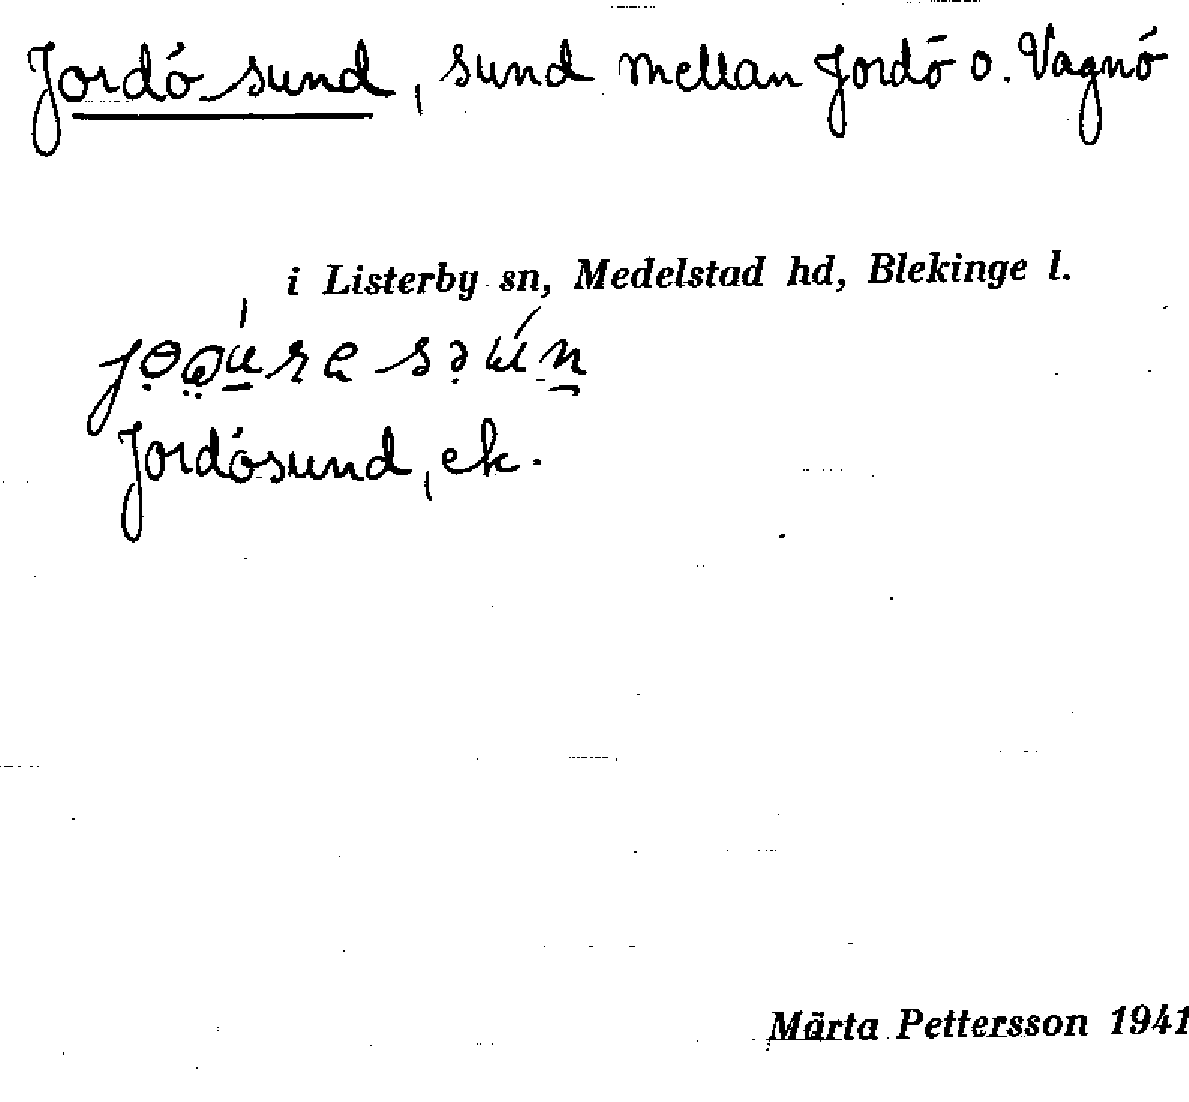 Jordö sund, sund mellan Jordö o. Vagnö
i Listerby sn, Medelstad hd, Blekinge l.
Jordösund, ek.
Märta Pettersson 1941